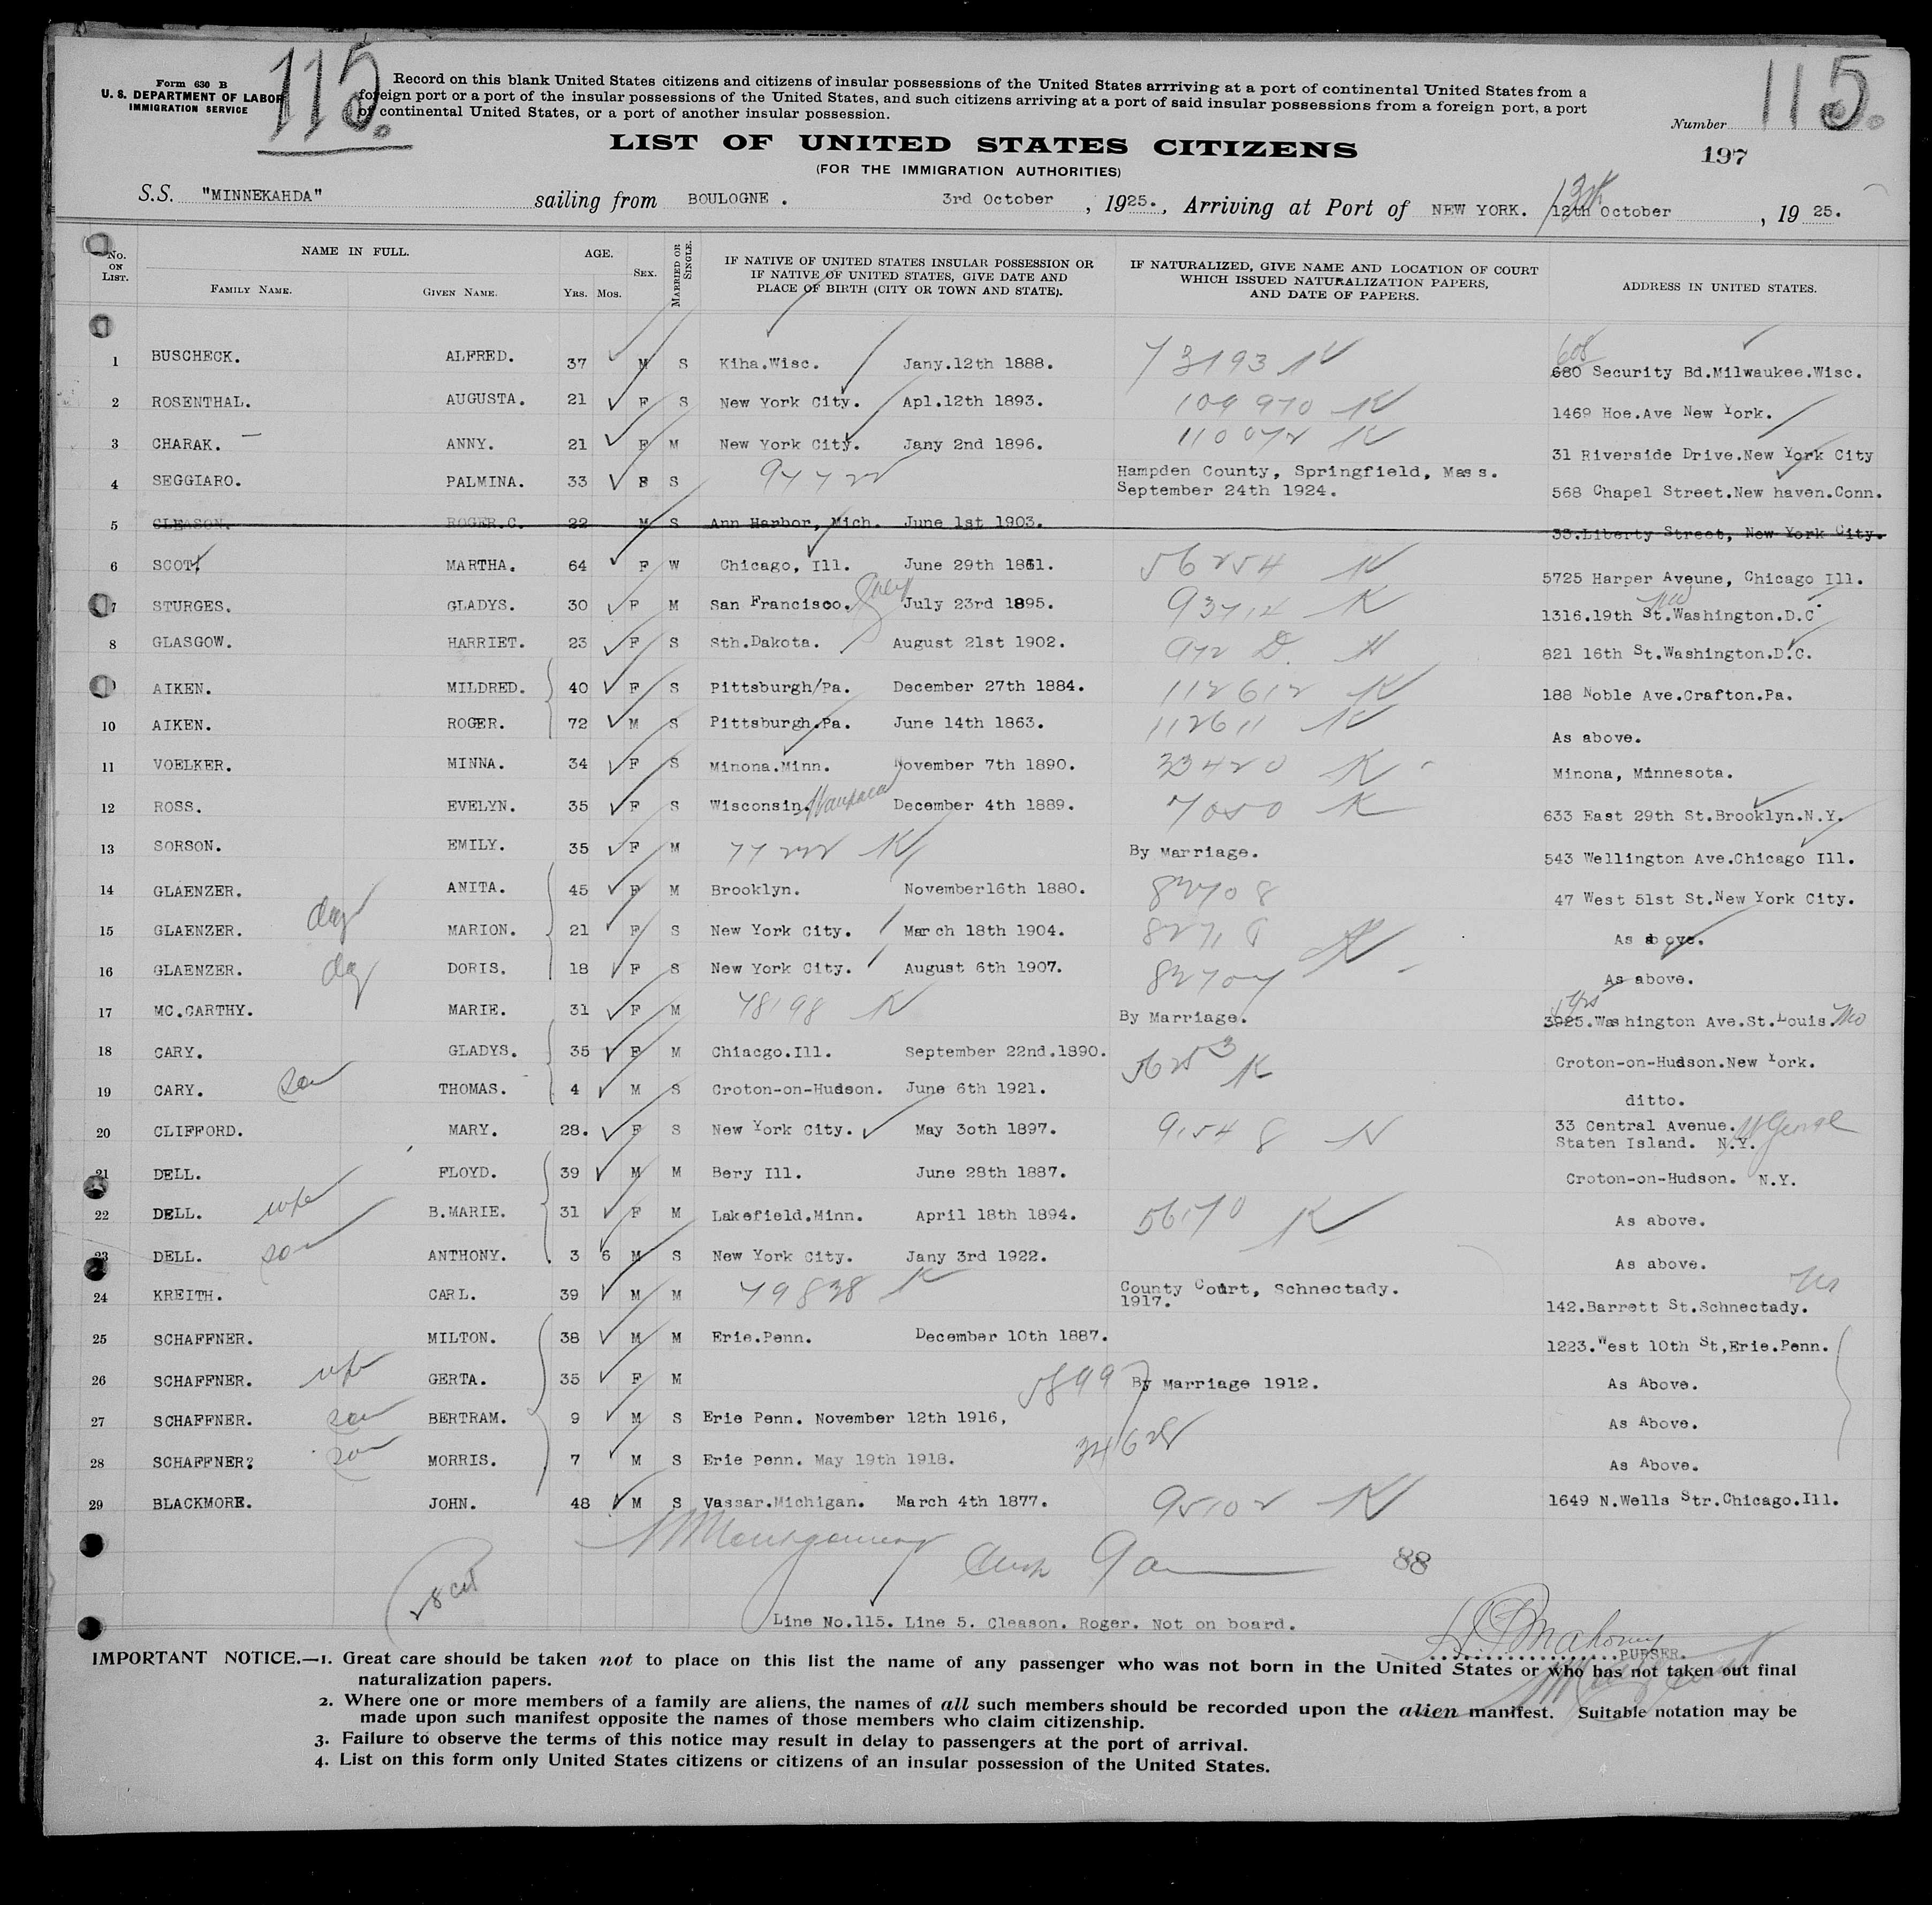 115.
115.
Form 630 B
U. S. DEPARTMENT OF LABOR
IMMIGRATION SERVICE
Record on this blank United States citizens and citizens of insular possessions of the United States arrriving at a port of continental United States from a
foreign port or a port of the insular possessions of the United States, and such citizens arriving at a port of said insular possessions from a foreign port, a port
of continental United States, or a port of another insular possession.
Number
197
LIST OF UNITED STATES CITIZENS
(FOR THE IMMIGRATION AUTHORITIES)
S.S. "MINNEKAHDA" sailing from BOULOGNE . 3rd October , 1925. , Arriving at Port of NEW YORK. 13th 12th October , 19 25.
No. ON LIST. NAME IN FULL. FAMILY NAME. GIVEN NAME. AGE. YRS. MOS. SEX. MARRIED OR SINGLE. IF NATIVE OF UNITED STATES INSULAR POSSESSION OR IF NATIVE OF UNITED STATES, GIVE DATE AND PLACE OF BIRTH (CITY OR TOWN AND STATE). IF NATURALIZED, GIVE NAME AND LOCATION OF COURT WHICH ISSUED NATURALIZATION PAPERS, AND DATE OF PAPERS. ADDRESS IN UNITED STATES.
1 BUSCHECK. ALFRED. 37 M S Kiha.Wisc. Jany.12th 1888. 73193 K 608 680 Security Bd.Milwaukee.Wisc.
2 ROSENTHAL. AUGUSTA. 21 F S New York City. Apl.12th 1893. 109970 K 1469 Hoe.Ave New York.
3 CHARAK. ANNY. 21 F M New York City. Jany 2nd 1896. 110072 K 31 Riverside Drive.New York City
4 SEGGIARO. PALMINA. 33 F S Hampden County, Springfield, Mass. September 24th 1924. 568 Chapel Street.New haven.Conn.
5 GLEASON. ROGER.C. 22 M S Ann Harbor, Mich. June 1st 1903. 33.Liberty Street, New York City.
6 SCOT. MARTHA. 64 F W Chicago, Ill. June 29th 1861. 56254 K 5725 Harper Aveune, Chicago Ill.
7 STURGES. GLADYS. 30 F M San Francisco. July 23rd 1895. 93712 K 1316.19th St.NW Washington.D.C.
8 GLASGOW. HARRIET. 23 F S Sth.Dakota. August 21st 1902. 972 D. 821 16th St.Washington.D.C.
AIKEN. MILDRED. 40 F S Pittsburgh/Pa. December 27th 1884. 112612 K 188 Noble Ave.Crafton.Pa.
10 AIKEN. ROGER. 72 M S Pittsburgh.Pa. June 14th 1863. 112611 K As above.
11 VOELKER. MINNA. 34 F S Minona.Minn. November 7th 1890. 33420 K Minona, Minnesota.
12 ROSS. EVELYN. 35 F S Wisconsin. Waupaca December 4th 1889. 7050 K 633 East 29th St.Brooklyn.N.Y.
13 SORSON. EMILY. 35 F M 77222 K By Marriage. 543 Wellington Ave.Chicago Ill.
14 GLAENZER. ANITA. 45 F M Brooklyn. November16th 1880. 82708 47 West 51st St.New York City.
15 GLAENZER. dag MARION. 21 F S New York City. March 18th 1904. K As above.
16 GLAENZER. dag DORIS. 18 F S New York City. August 6th 1907. 82707 As above.
17 MC.CARTHY. MARIE. 31 F M 78198 K By Marriage. 3925.Washington Ave.St.Louis.Mo
18 CARY. GLADYS. 35 F M Chiacgo.Ill. September 22nd.1890. 56253 K Croton-on-Hudson.New York.
19 CARY. son THOMAS. 4 M S Croton-on-Hudson. June 6th 1921. ditto.
20 CLIFFORD. MARY. 28. F S New York City. May 30th 1897. 9548 K 33 Central Avenue. St George Staten Island. N.Y.
21 DELL. FLOYD. 39 M M Bery Ill. June 28th 1887. Croton-on-Hudson. N.Y.
22 DELL. wife B.MARIE. 31 F M Lakefield.Minn. April 18th 1894. 56170 K As above.
23 DELL. son ANTHONY. 3 6 M S New York City. Jany 3rd 1922. As above.
24 KREITH. CARL. 39 M M 79838 K County Court, Schnectady. 1917. 142.Barrett St.Schnectady. NY
25 SCHAFFNER. MILTON. 38 M M Erie.Penn. December 10th 1887. 1223.West 10th St,Erie.Penn.
26 SCHAFFNER. wife GERTA. 35 F M 5899 By Marriage 1912. As Above.
27 SCHAFFNER. son BERTRAM. 9 M S Erie Penn. November 12th 1916, As Above.
28 SCHAFFNER? son MORRIS. 7 M S Erie Penn. May 19th 1918. As Above.
29 BLACKMORE. JOHN. 48 M S Vassar.Michigan. March 4th 1877. 95102 K 1649 N.Wells Str.Chicago.Ill.
Montgomery
88
Line No.115. Line 5. Cleason. Roger. Not on board.
Mahoney
PURSER.
IMPORTANT NOTICE.—1. Great care should be taken not to place on this list the name of any passenger who was not born in the United States or who has not taken out final
naturalization papers.
2. Where one or more members of a family are aliens, the names of all such members should be recorded upon the alien manifest. Suitable notation may be
made upon such manifest opposite the names of those members who claim citizenship.
3. Failure to observe the terms of this notice may result in delay to passengers at the port of arrival.
4. List on this form only United States citizens or citizens of an insular possession of the United States.